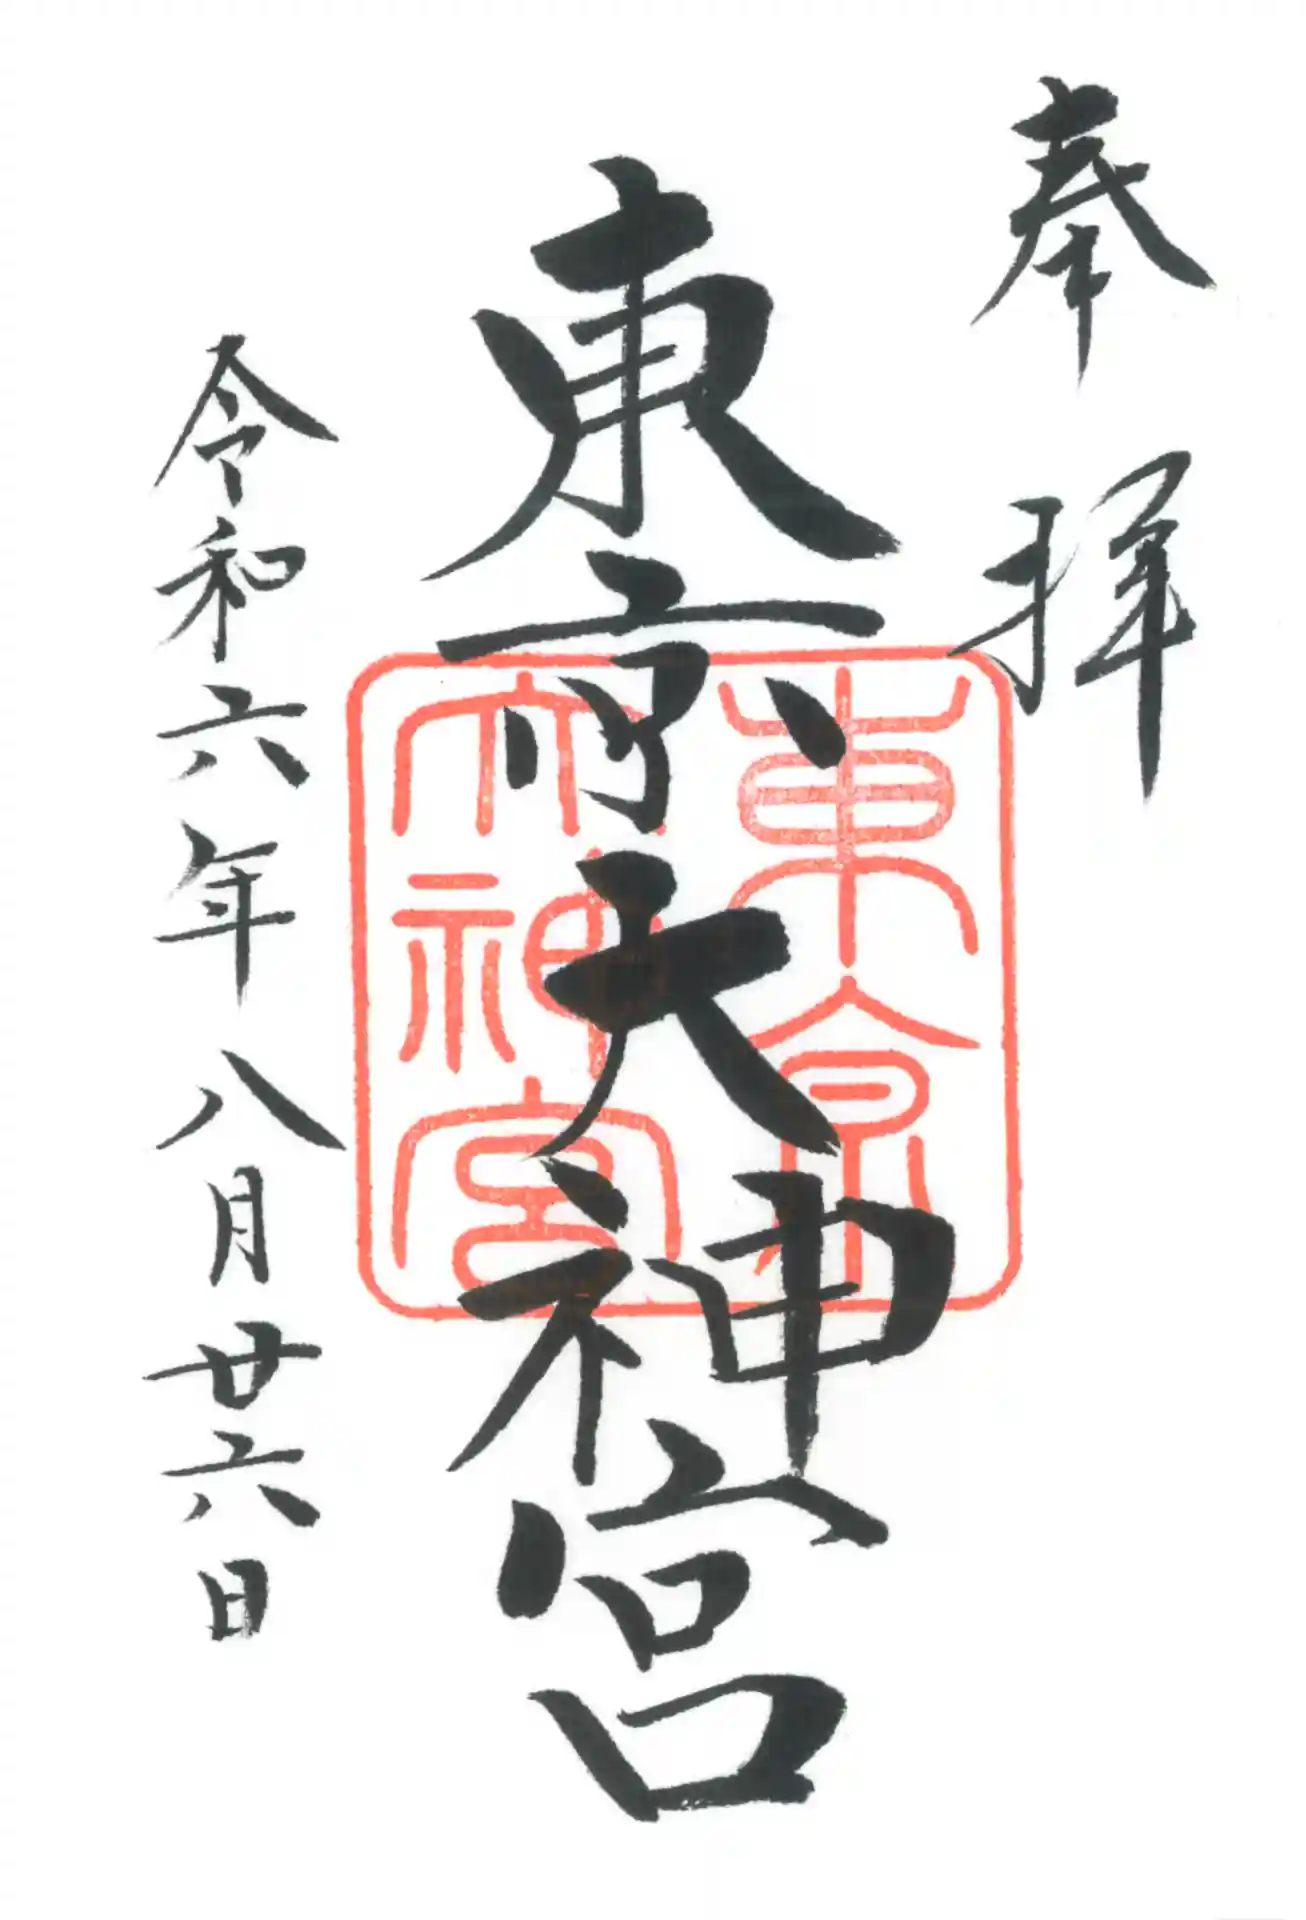 奉拝
東京大神宮
東京
大神宮
令和六年八月廿六日